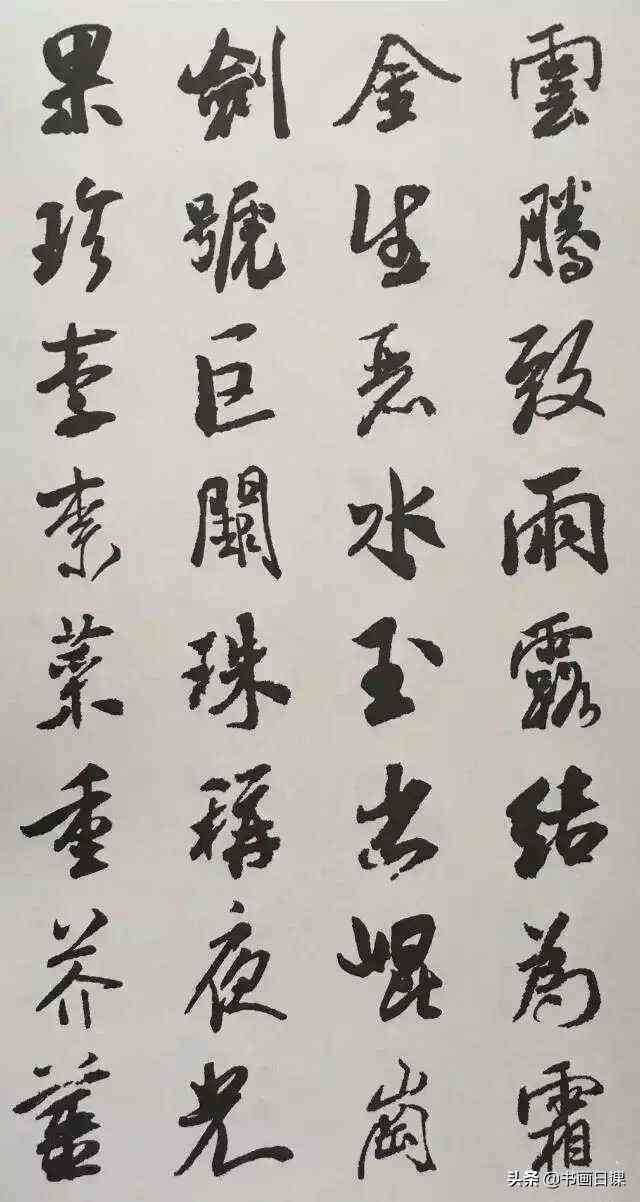 雲騰致雨露結為霜
金生麗水玉出崐崗
劍號巨闕珠稱夜光
果珍李柰菜重芥薑
头条 @书画日课